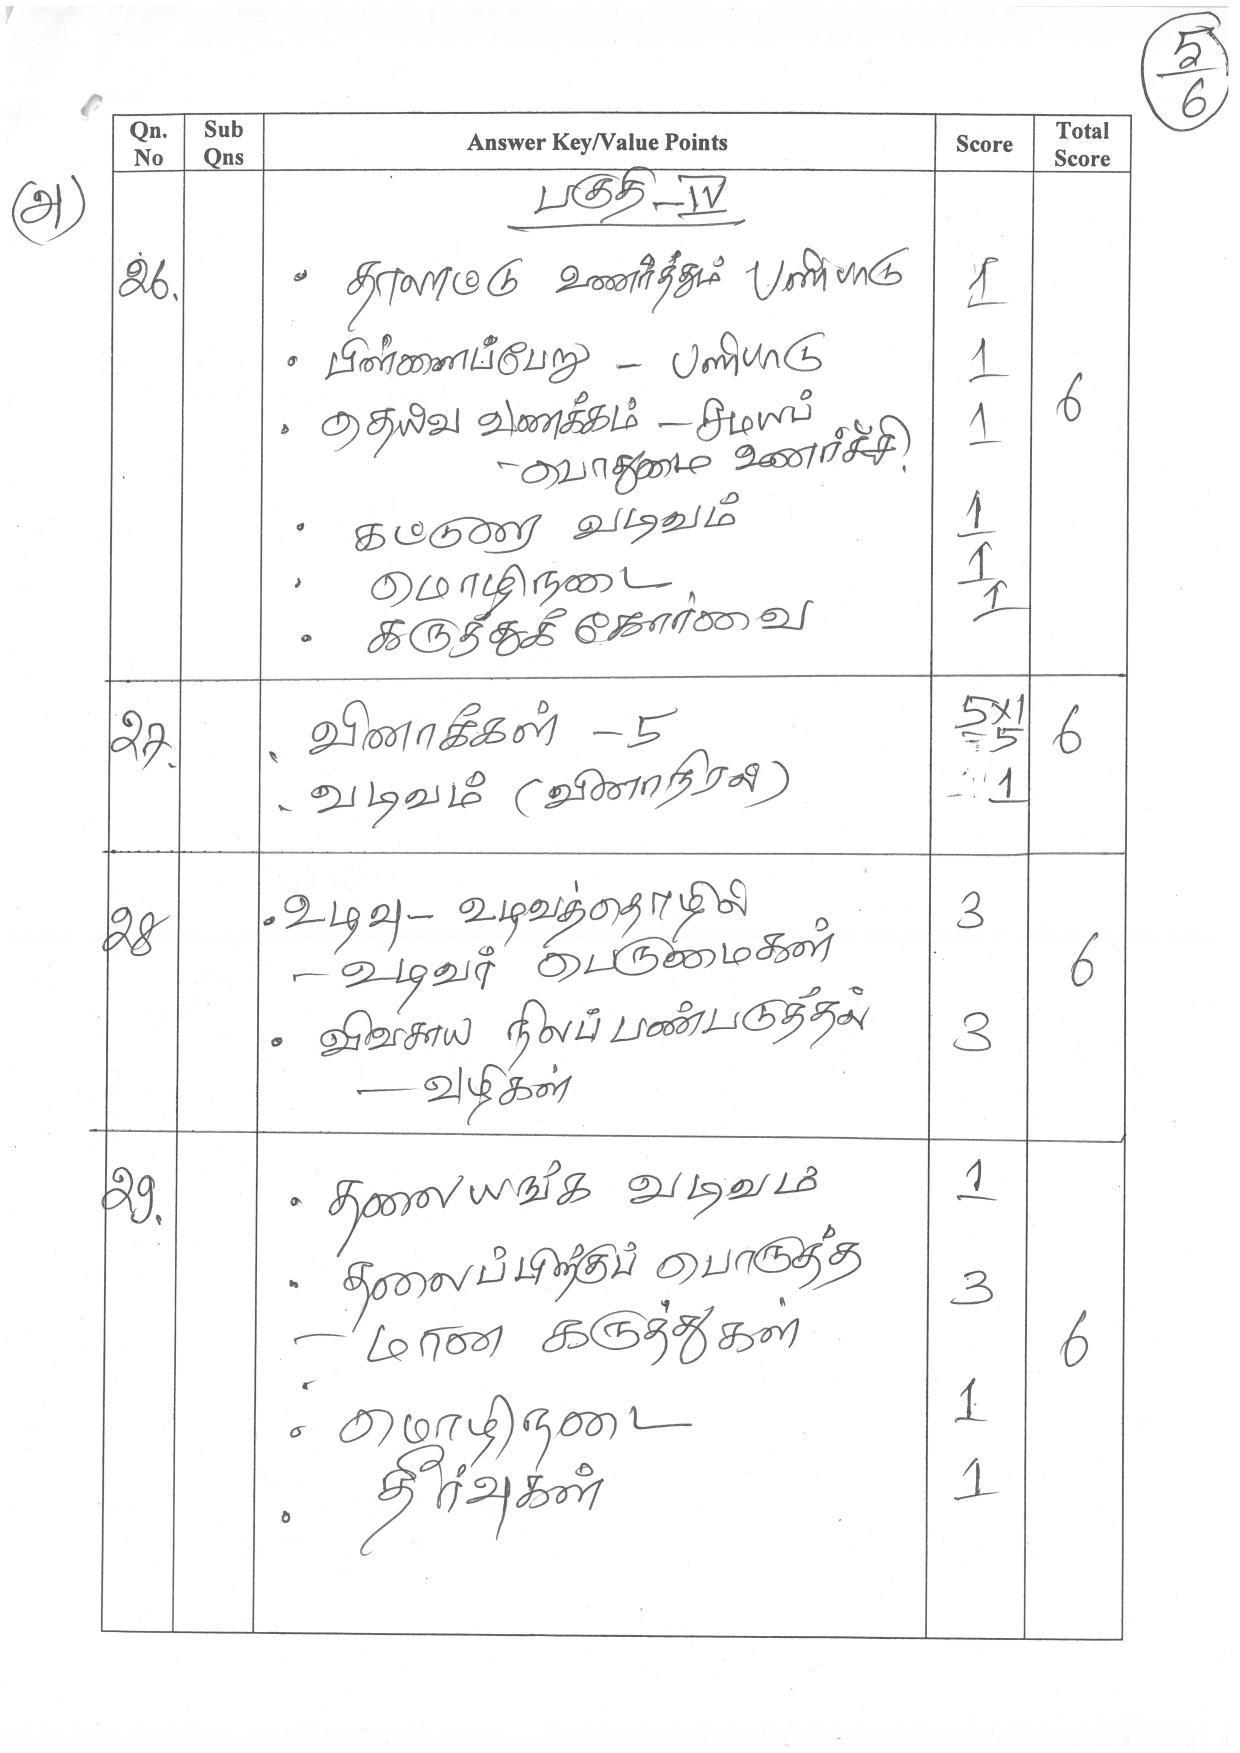 5/6
Qn. No Sub Qns Answer Key/Value Points Score Total Score
(அ)
பகுதி - IV
26. • தாலாட்டு உணர்த்தும் பண்பாடு 1
• பிள்ளைப்பேறு - பண்பாடு 1
• தெய்வ வணக்கம் - சமயப் 1 6
- பொதுமை உணர்ச்சி.
• கட்டுரை வடிவம் 1
• மொழிநடை 1
• கருத்துக் கோர்வை 1
27. . வினாக்கள் - 5 5x1=5 6
. வடிவம் (வினாநிரல்) 1
28 • உழவு - உழவுத்தொழில் 3
- உழவர் பெருமைகள் 6
• விவசாய நிலப் பண்படுத்தல் 3
- வழிகள்
29. • தலையங்க வடிவம் 1
• தலைப்பிற்குப் பொருத்த 3
- மான கருத்துகள் 6
• மொழிநடை 1
• தீர்வுகள் 1